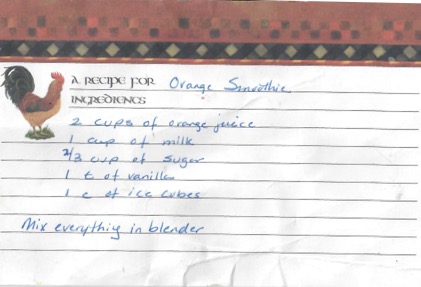 A RECIPE FOR Orange Smoothie
INGREDIENTS
2 cups of orange juice
1 cup of milk
2/3 cup of sugar
1 t of vanilla
1 c of ice cubes
Mix everythiy in blender